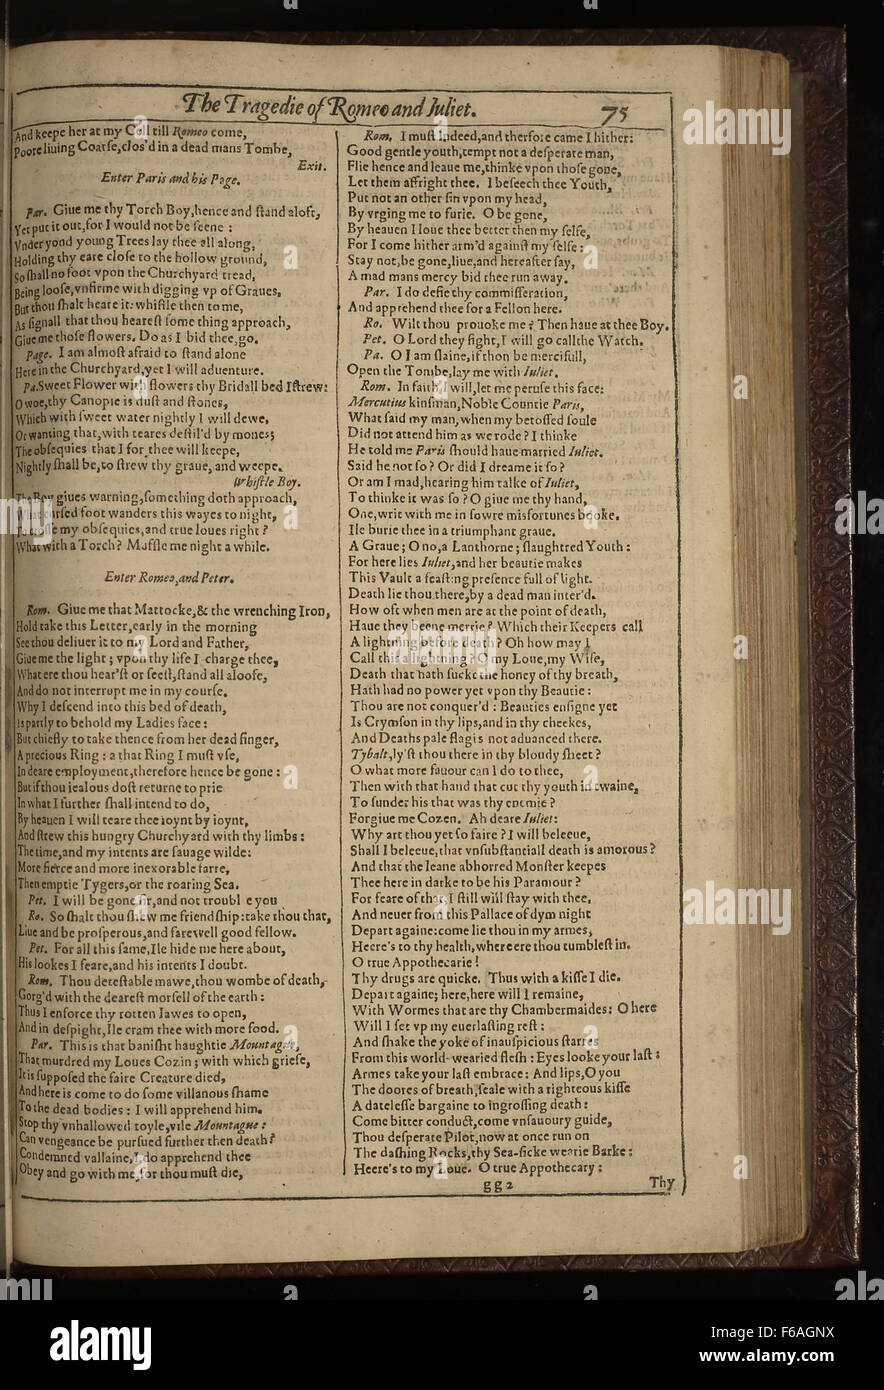 The Tragedie of Romeo and Iuliet. 75
And keepe her at my Cell till Romeo come,
Poore liuing Coarse, clos'd in a dead mans Tombe,
Exit.
Enter Paris and his Page.
Par. Giue me thy Torch Boy, hence and stand aloft,
Yet put it out, for I would not be seene :
Vnder yond young Trees lay thee all along,
Holding thy eare close to the hollow ground,
So shall no foot vpon the Churchyard tread,
Being loose, vnfirme with digging vp of Graues,
But thou shalt heare it: whistle then to me,
As signall that thou hearest some thing approach,
Giue me those flowers. Do as I bid thee, go.
Page. I am almost afraid to stand alone
Here in the Churchyard, yet I will aduenture.
Pa. Sweet Flower with flowers thy Bridall bed I strew:
O woe, thy Canopie is dust and stones,
Which with sweet water nightly I will dewe,
Or wanting that, with teares destil'd by mones;
The obsequies that I for thee will keepe,
Nightly shall be, to strew thy graue, and weepe.
Whistle Boy.
The Boy giues warning, something doth approach,
What cursed foot wanders this wayes to night,
To crosse my obsequies, and true loues right ?
What with a Torch ? Muffle me night a while.
Enter Romeo, and Peter.
Rom. Giue me that Mattocke, & the wrenching Iron,
Hold take this Letter, early in the morning
See thou deliuer it to my Lord and Father,
Giue me the light ; vpon thy life I charge thee,
What ere thou hear'st or seest, stand all aloofe,
And do not interrupt me in my course.
Why I descend into this bed of death,
Is partly to behold my Ladies face :
But chiefly to take thence from her dead finger,
A precious Ring : a that Ring I must vse,
In deare employment, therefore hence be gone :
But if thou iealous dost returne to prie
In what I further shall intend to do,
By heauen I will teare thee ioynt by ioynt,
And strew this hungry Churchyard with thy limbs :
The time, and my intents are sauage wilde:
More fierce and more inexorable farre,
Then emptie Tygers, or the roaring Sea.
Pet. I will be gone sir, and not troubl e you
Ro. So shalt thou shew me friendship: take thou that,
Liue and be prosperous, and farewell good fellow.
Pet. For all this same, Ile hide me here about,
His lookes I feare, and his intents I doubt.
Rom. Thou detestable mawe, thou wombe of death,
Gorg'd with the dearest morsell of the earth :
Thus I enforce thy rotten Iawes to open,
And in despight, Ile cram thee with more food.
Par. This is that banisht haughtie Mountague,
That murdred my Loues Cozin ; with which griefe,
It is supposed the faire Creature died,
And here is come to do some villanous shame
To the dead bodies : I will apprehend him.
Stop thy vnhallowed toyle, vile Mountague :
Can vengeance be pursued further then death ?
Condemned vallaine, I do apprehend thee
Obey and go with me, for thou must die,
Rom. I must indeed, and therfore came I hither:
Good gentle youth, tempt not a desperate man,
Flie hence and leaue me, thinke vpon those gone,
Let them affright thee. I beseech thee Youth,
Put not an other sin vpon my head,
By vrging me to furie. O be gone,
By heauen I loue thee better then my selfe,
For I come hither arm'd against my selfe :
Stay not, be gone, liue, and hereafter say,
A mad mans mercy bid thee run away.
Par. I do defie thy commisseration,
And apprehend thee for a Fellon here.
Ro. Wilt thou prouoke me ? Then haue at thee Boy.
Pet. O Lord they fight, I will go call the Watch.
Pa. O I am slaine, if thou be mercifull,
Open the Tombe, lay me with Iuliet.
Rom. In faith I will, let me peruse this face:
Mercutius kinsman, Noble Countie Paris,
What said my man, when my betossed soule
Did not attend him as we rode ? I thinke
He told me Paris should haue married Iuliet.
Said he not so ? Or did I dreame it so ?
Or am I mad, hearing him talke of Iuliet,
To thinke it was so ? O giue me thy hand,
One, writ with me in sowre misfortunes booke.
Ile burie thee in a triumphant graue.
A Graue ; O no, a Lanthorne ; slaughtred Youth :
For here lies Iuliet, and her beautie makes
This Vault a feasting presence full of light.
Death lie thou there, by a dead man inter'd.
How oft when men are at the point of death,
Haue they beene merrie ? Which their Keepers call
A lightning before death ? Oh how may I
Call this a lightning ? O my Loue, my Wife,
Death that hath suckt the honey of thy breath,
Hath had no power yet vpon thy Beautie :
Thou are not conquer'd : Beauties ensigne yet
Is Crymson in thy lips, and in thy cheekes,
And Deaths pale flag is not aduanced there.
Tybalt, ly'st thou there in thy bloudy sheet ?
O what more fauour can I do to thee,
Then with that hand that cut thy youth in twaine,
To sunder his that was thy enemie ?
Forgiue me Cozen. Ah deare Iuliet :
Why art thou yet so faire ? I will beleeue,
Shall I beleeue, that vnsubstantiall death is amorous ?
And that the leane abhorred Monster keepes
Thee here in darke to be his Paramour ?
For feare of that, I still will stay with thee,
And neuer from this Pallace of dym night
Depart againe: come lie thou in my armes,
Heere's to thy health, where ere thou tumblest in.
O true Appothecarie !
Thy drugs are quicke. Thus with a kisse I die.
Depart againe; here, here will I remaine,
With Wormes that are thy Chambermaides : O here
Will I set vp my euerlasting rest :
And shake the yoke of inauspicious starres
From this world-wearied flesh : Eyes looke your last :
Armes take your last embrace : And lips, O you
The doores of breath, seale with a righteous kisse
A datelesse bargaine to ingrossing death :
Come bitter conduct, come vnsauoury guide,
Thou desperate Pilot, now at once run on
The dashing Rocks, thy Sea-sicke wearie Barke :
Heere's to my Loue. O true Appothecary :
gg2 Thy
alamy
Image ID: F6AGNX
www.alamy.com